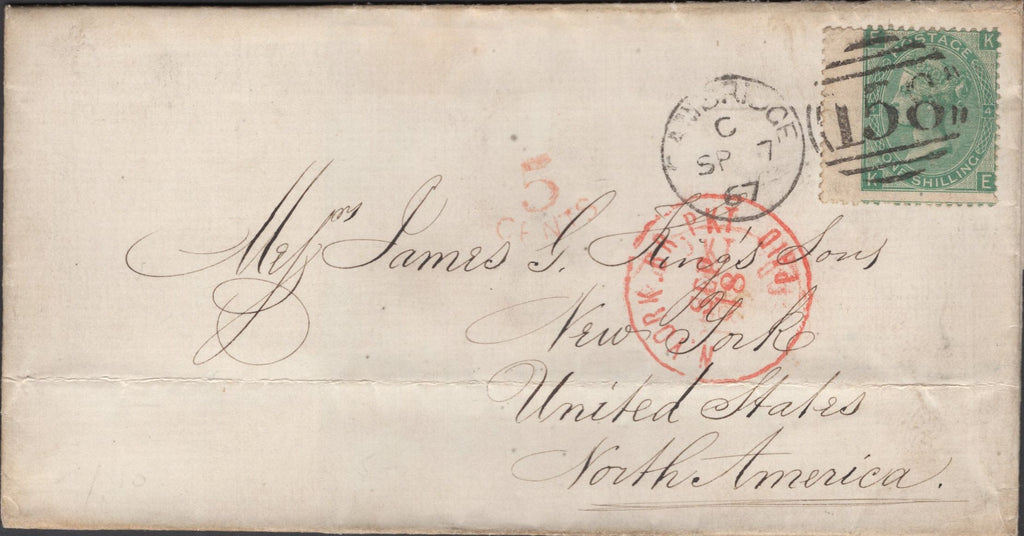 POSTAGE
K
ONE SHILLING
K E
CAMBRIDGE
C
SP 7
67
5
CENTS
N. YORK AM. PKT
PAID
SEP
18
Messrs James G. King's Sons
New York
United States
North America.